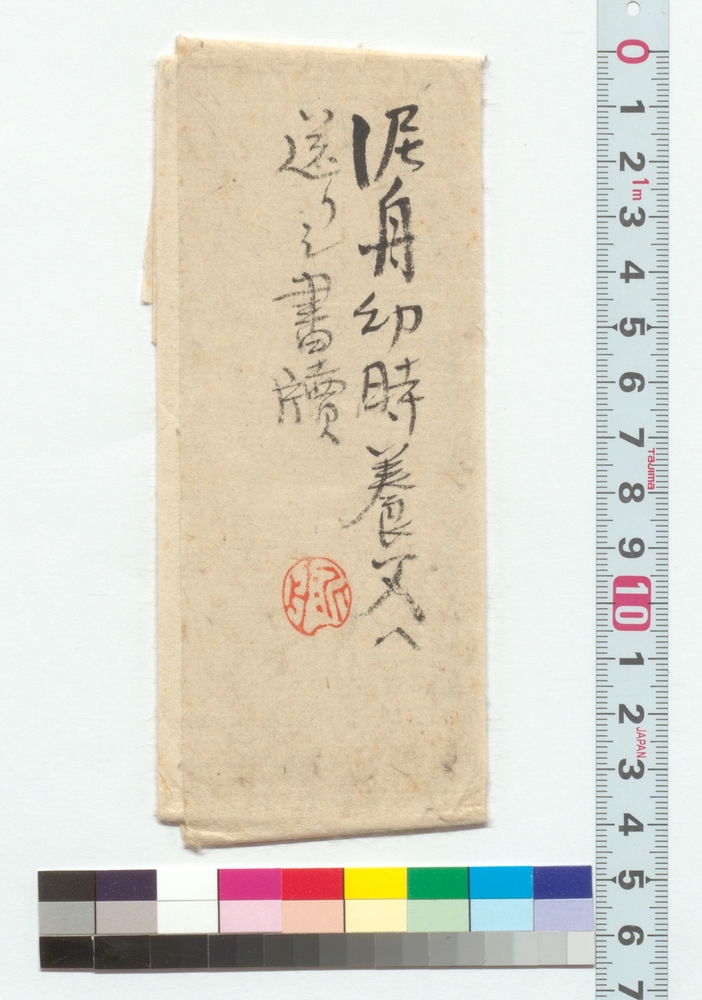 泥舟幼時養父へ
送りし書牘
0
1
2
1m
3
4
5
6
7
Tajima
8
9
10
1
2
JAPAN
3
4
5
6
7